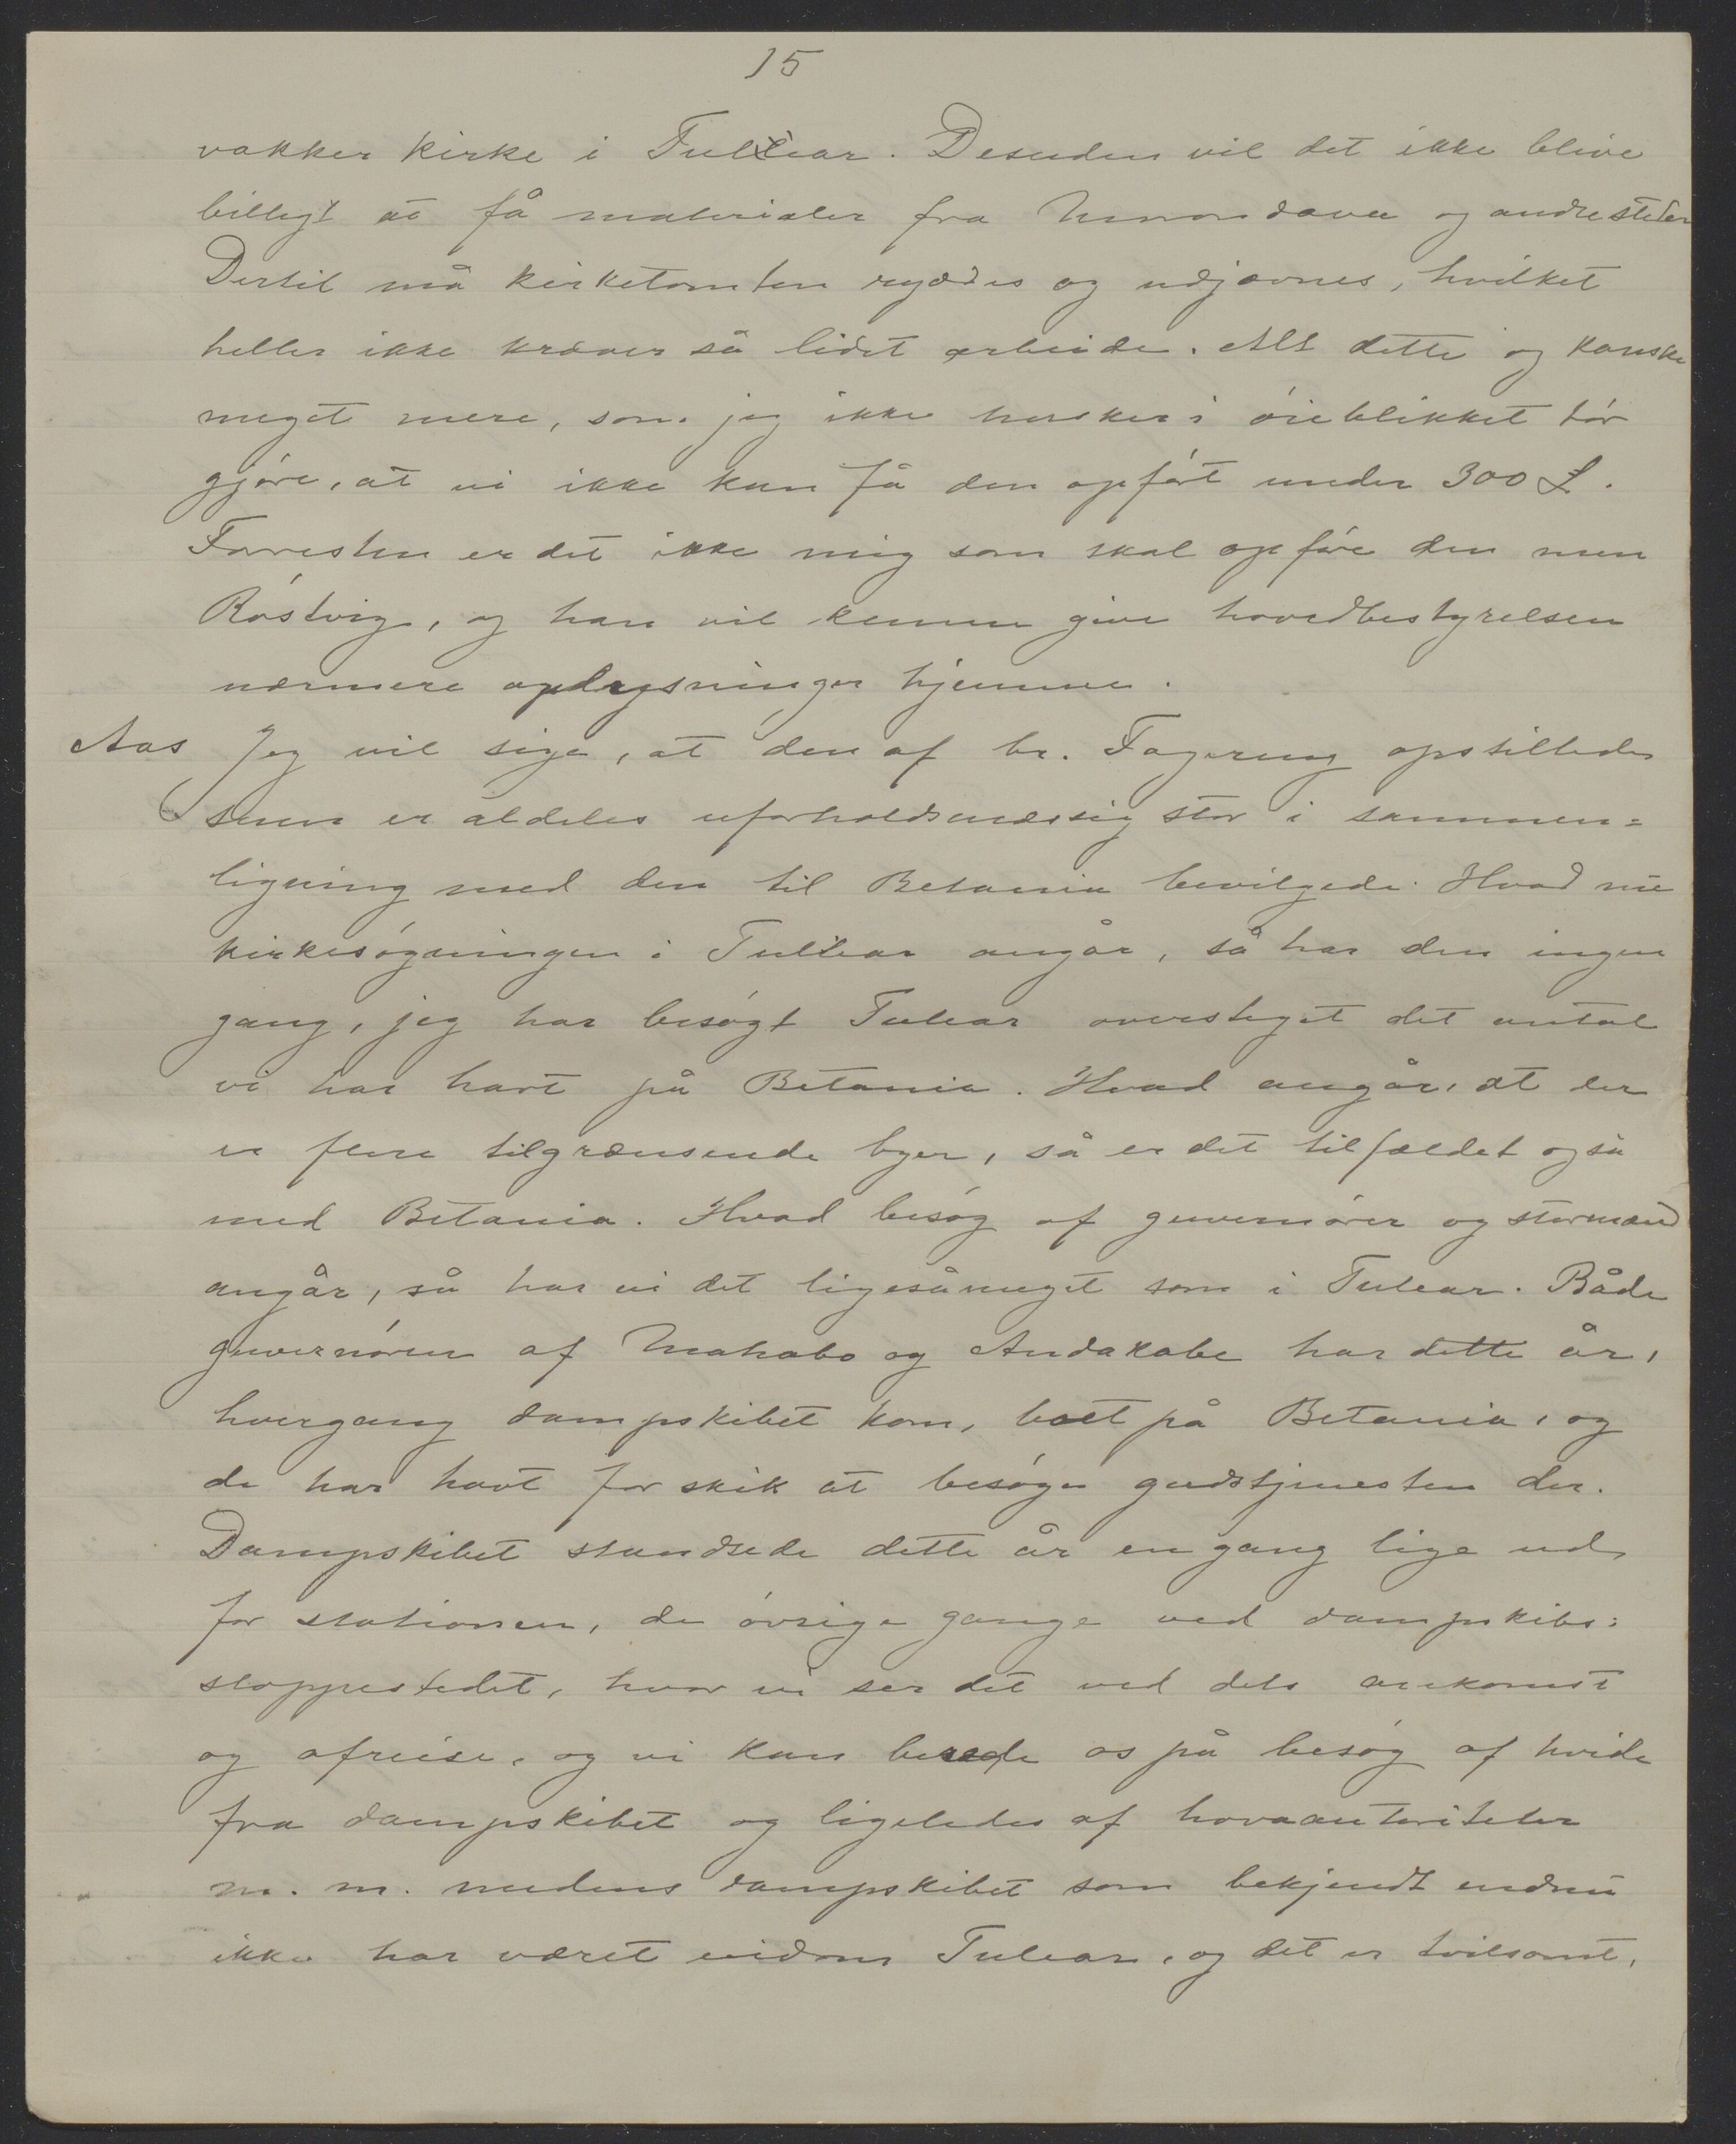 15
vakker kirke i Tullear. Desuden vil det ikke blive
billigt at få materialer fra Morondava og andre steder
Dertil må kirketomten ryddes og udjævnes, hvilket
heller ikke kræver så lidet arbeide. Alt dette og kanske
meget mere, som jeg ikke husker i öieblikket tör
gjöre, at vi ikke kan få den opfört under 300 £.
Forresten er det ikke mig som skal opföre den men
Röstvig, og han vil kunne give hovedbestyrelsen
nærmere oplysninger hjemme.
Aas Jeg vil sige, at den af br. Fagereng opstillede
sum er aldeles uforholdsmæssig stor i sammen=
ligning med den til Betania bevilgede. Hvad nu
kirkesögningen i Tullear angår, så har den ingen
gang, jeg har besögt Tulear oversteget det antal
vi har havt på Betania. Hvad angår, at der
er flere tilgrænsende byer, så er det tilfældet også
med Betania. Hvad besög af guvernörer og stormænd
angår, så har vi det ligesåmeget som i Tulear. Både
guvernören af Mahabo og Andakabe har dette år,
hvergang dampskibet kom, boet på Betania, og
de har havt for skik at besöge gudstjenesten der.
Dampskibet standsede dette år en gang lige ud
for stationen, de övrige gange ved dampskibs=
stoppestedet, hvor vi ser det ved dets ankomst
og afreise, og vi kan berede os på besög af hvide
fra dampskibet og ligeledes af hovaautoriteter
m. m. medens dampskibet som bekjendt endnu
ikke har været indom Tulear, og det er tvilsomt,